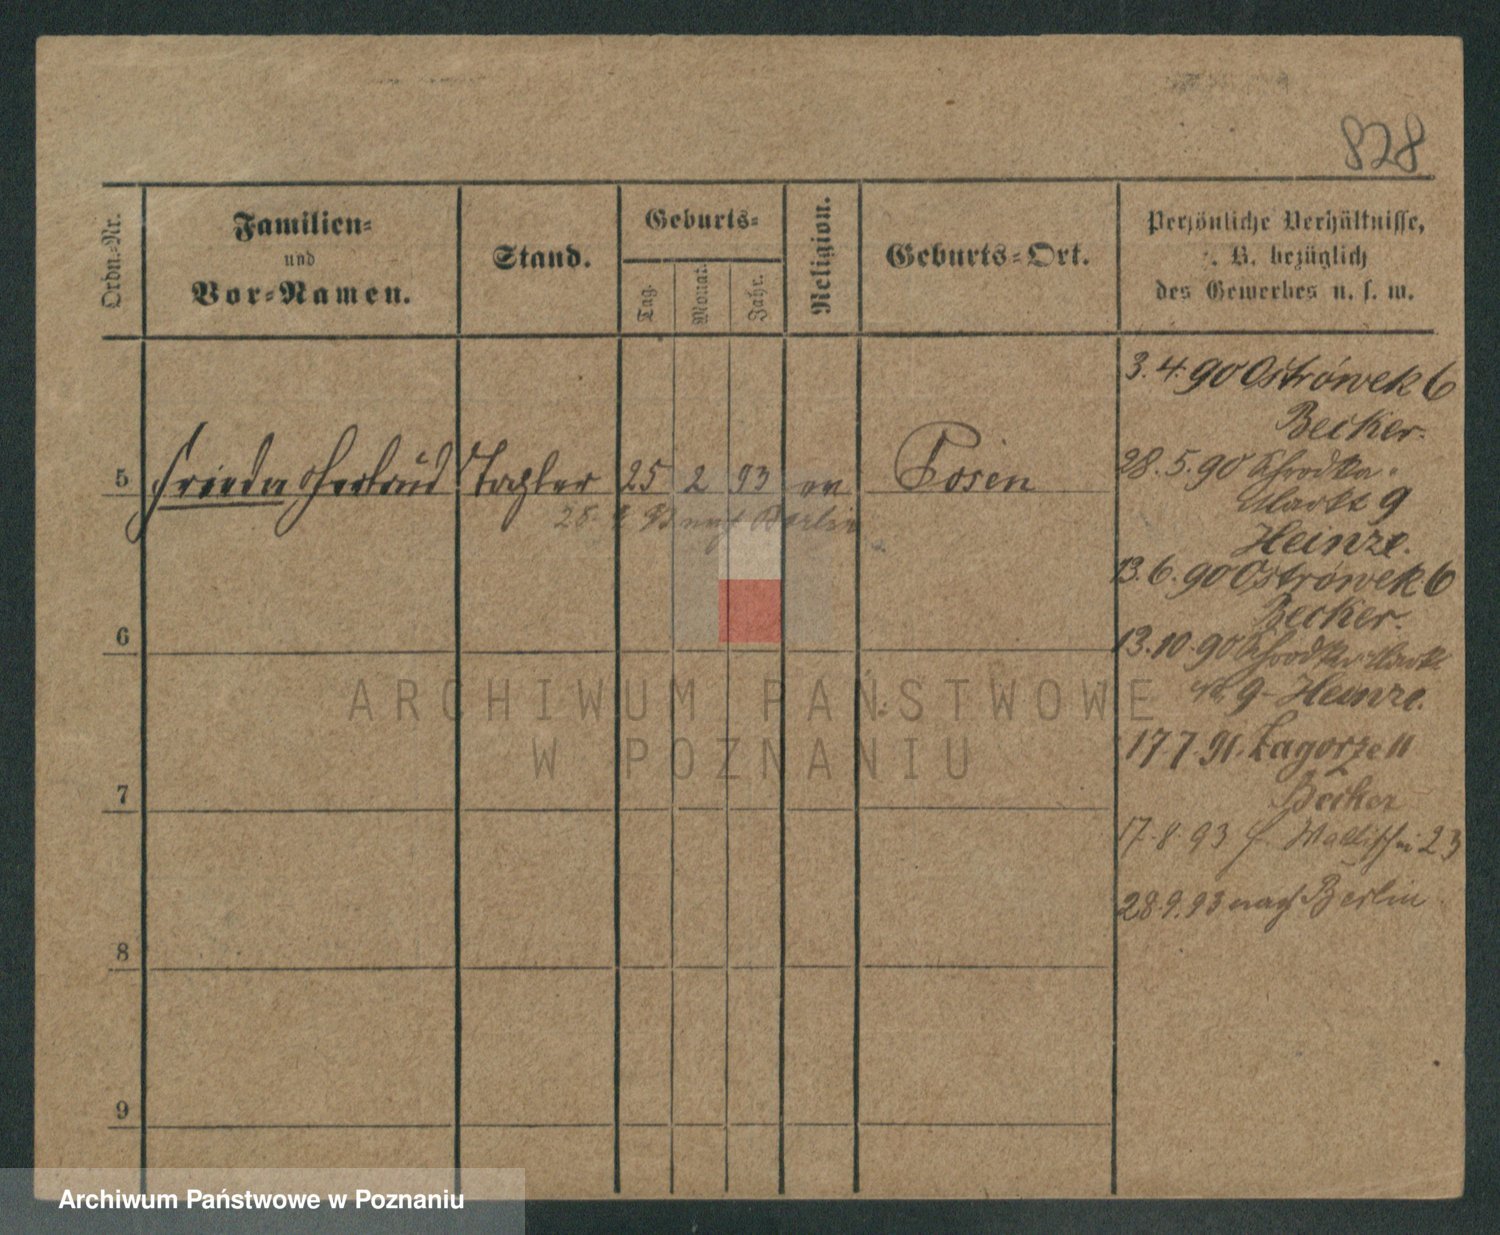 828
Ordn.-Nr.
Familien-
und
Vor-Namen.
Stand.
Geburts-
Tag.
Monat.
Jahr.
Religion.
Geburts-Ort.
Persönliche Verhältnisse,
z. B. bezüglich
des Gewerbes u. s. w.
5 Frieda Gertrud Tochter 25 2 93 ev Posen
28. 9. 93 nach Berlin
6
7
8
9
3. 4. 90 Ostrówek 6
Becker.
28. 5. 90 Schrodka-
Markt 9
Heinze.
13. 6. 90 Ostrówek 6
Becker.
13. 10. 90 Schrodka Markt
9 - Heinze.
17 7. 91. Zagorze 11
Becker
17. 8. 93 Wallischei 23
28. 9. 93 nach Berlin
ARCHIWUM PAŃSTWOWE
W POZNANIU
Archiwum Państwowe w Poznaniu